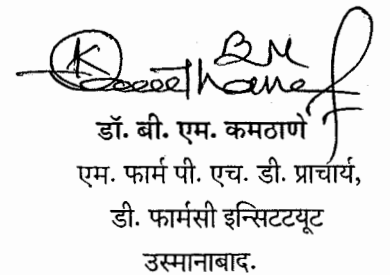 डॉ. बी. एम. कमठाणे
एम. फार्म पी. एच. डी. प्राचार्य,
डी. फार्मसी इन्सिटटयूट
उस्मानाबाद.